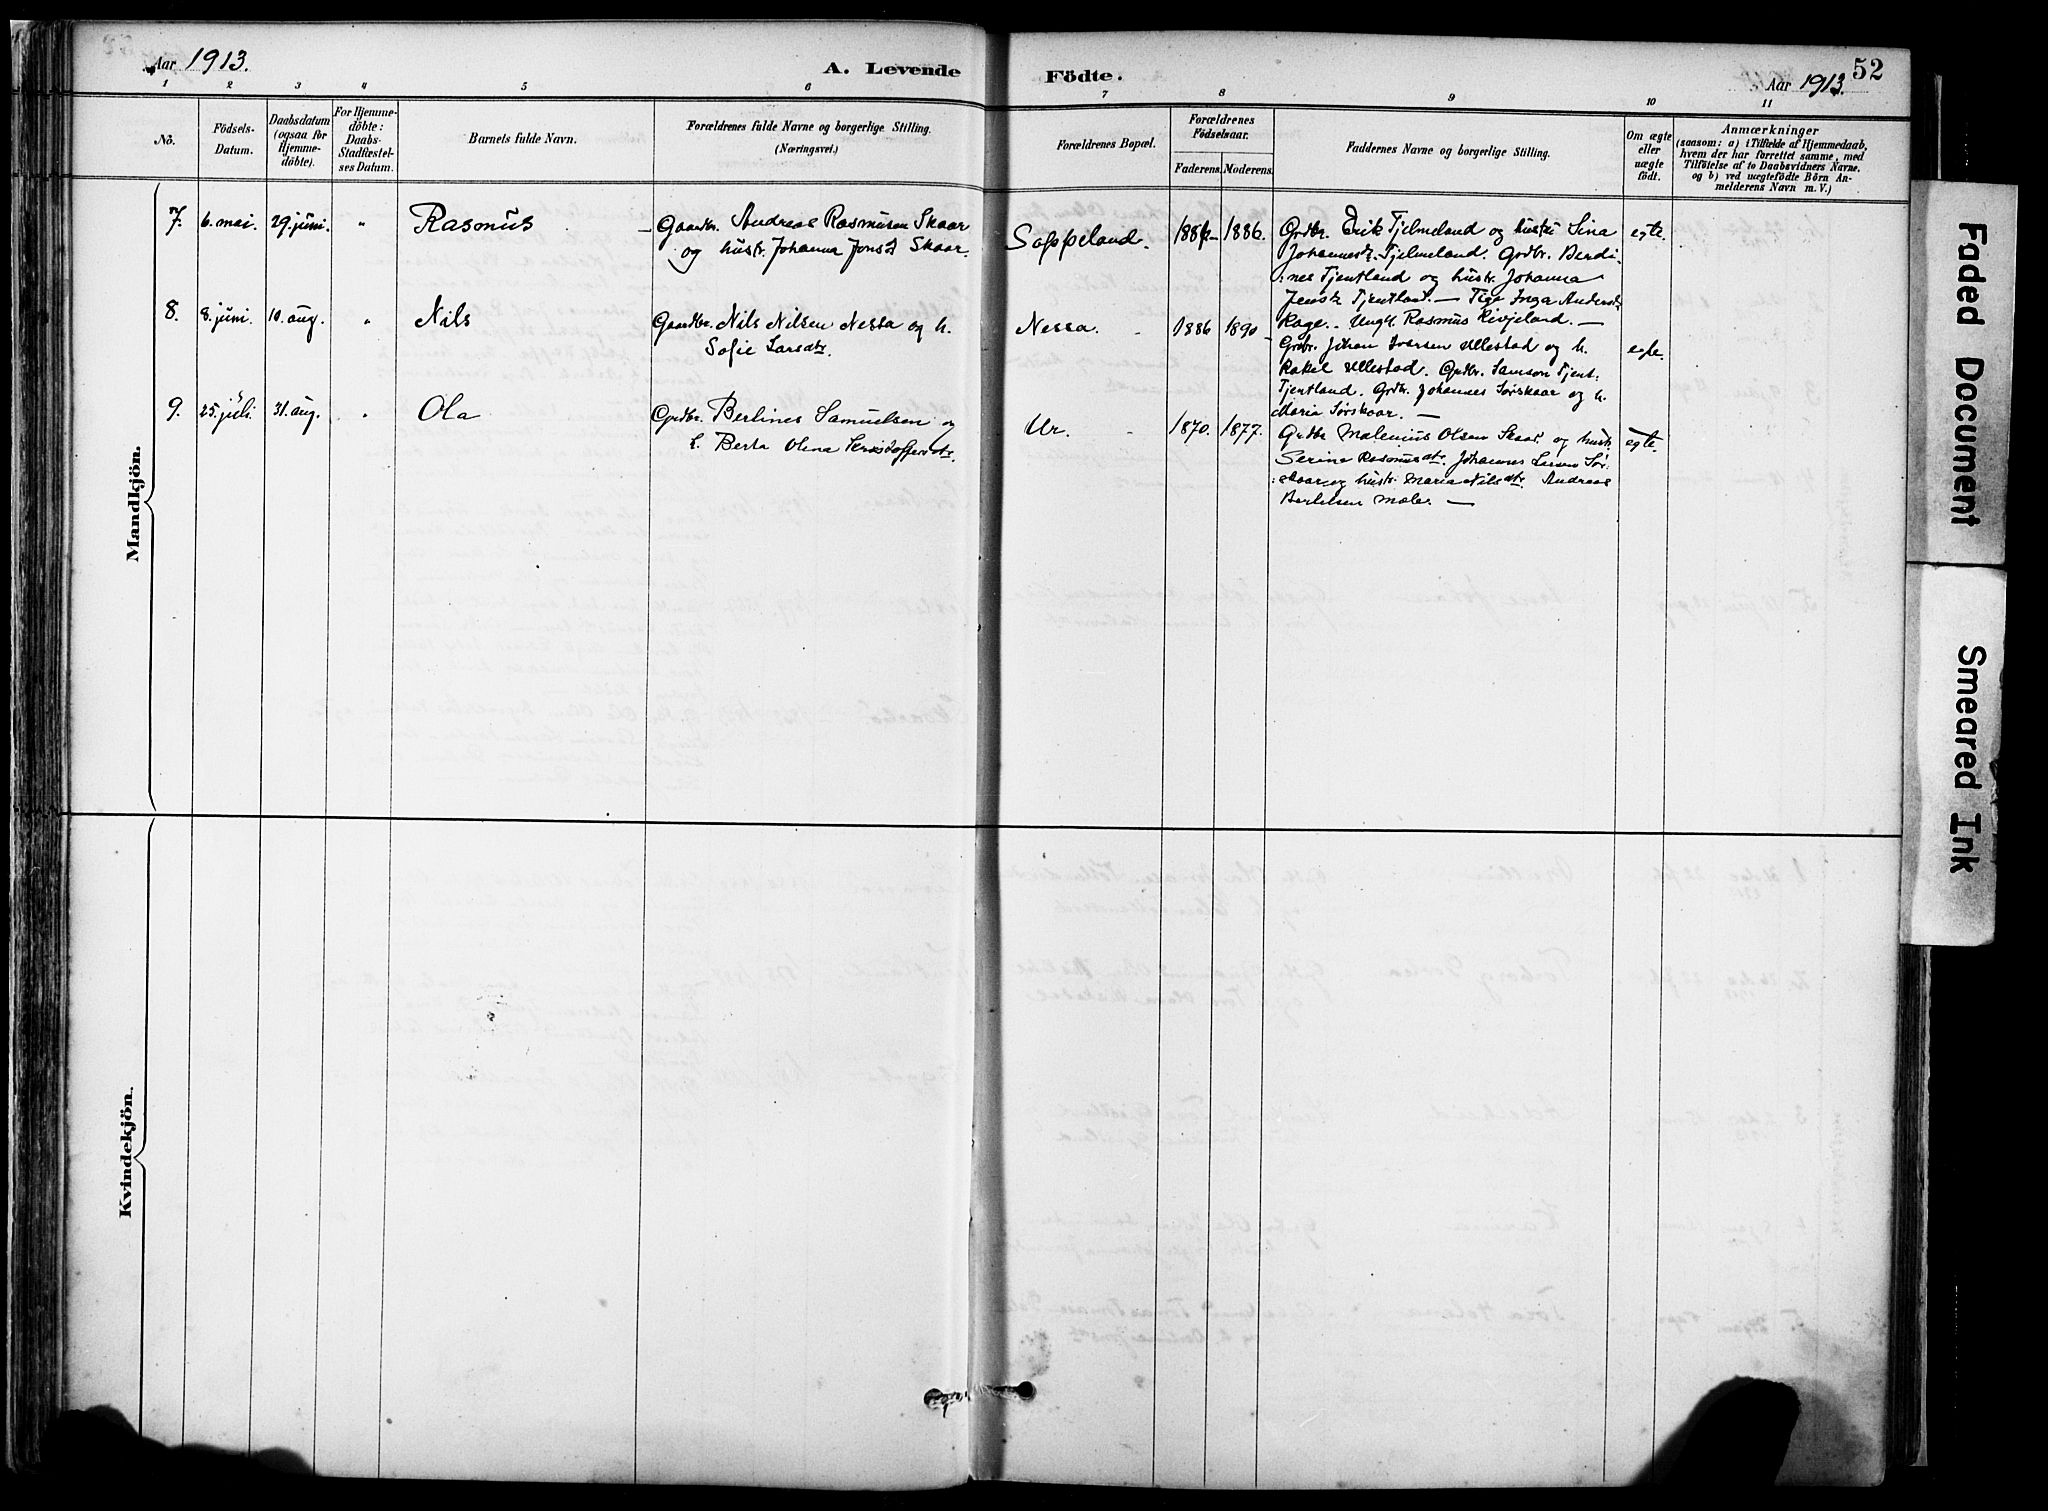 Aar 1913.
A. Levende Födte.
52
Aar 1913.
1 2 3 4 5 6 7 8 9 10 11
No.
Födsels-
Datum.
Daabsdatum
(ogsaa for
Hjemme-
döbte).
For Hjemme-
döbte:
Daabs-
Stadfæstel-
ses Datum.
Barnets fulde Navn.
Forældrenes fulde Navne og borgerlige Stilling.
(Næringsvei.)
Forældrenes Bopæl.
Forældrenes
Födselsaar.
Faderens.
Moderens.
Faddernes Navne og borgerlige Stilling.
Om ægte
eller
uægte
födt.
Anmærkninger
(saasom: a) i Tilfælde af Hjemmedaab,
hvem der har forrettet samme, med
Tilföielse af to Daabsvidners Navne,
og b) ved uægtefödte Börn An-
melderens Navn m. V.)
Mandkjön.
7. 6. mai. 29. juni. " Rasmus
Gaardbr. Andreas Rasmusen Skaar
og hustr. Johanna Skaar.
Soppeland. 1886.
Grdbr. Erik Tjelmeland og hustr. Sina
Johannesdtr. Tjelmeland. Grdbr. Berdi-
:nes Tjentland og hustr. Johanna
Tjentland. — Pige Inga
Rage. Ungk. Rasmus —
egte.
8. 8. juni. 10. aug. " Nils
Gaardbr. Nils Nilsen Nessa og h.
Sofie Larsdtr.
Nessa. 1886 1890
Grdbr. Johan Iversen Ullestad og h.
Rakel Ullestad. Grdbr. Samson Tjent:
Tjentland. Grdbr. Johannes Sørskaar og h.
Maria Sørskaar. —
egte.
9. 25. juli. 31. aug. " Ola
Grdbr. Berlines Samuelsen og
h. Berta Olena Kristoffersdtr.
Ur. 1870. 1877.
Grdbr Malenius Olsen Skaar og hustr.
Serine Rasmusdtr. Johannes Larsen Sør-
:skaar og hustr. Maria Nilsdtr. Andreas
Bertelsen Mæle. —
egte.
Kvindekjön.
Faded Document
Smeared Ink